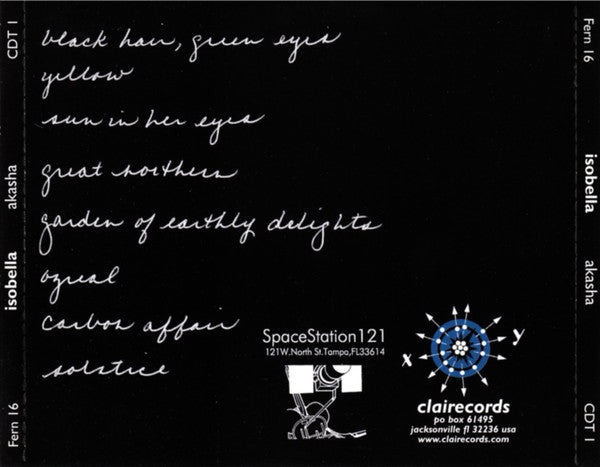 CDT 1
akasha
isobella
Fern 16
black hair, green eyes
yellow
sun in her eyes
great northern
garden of earthly delights
ozreal
carbon affair
solstice
SpaceStation121
121W.North St.Tampa,FL33614
x
y
clairecords
po box 61495
jacksonville fl 32236 usa
www.clairecords.com
Fern 16
isobella
akasha
CDT 1